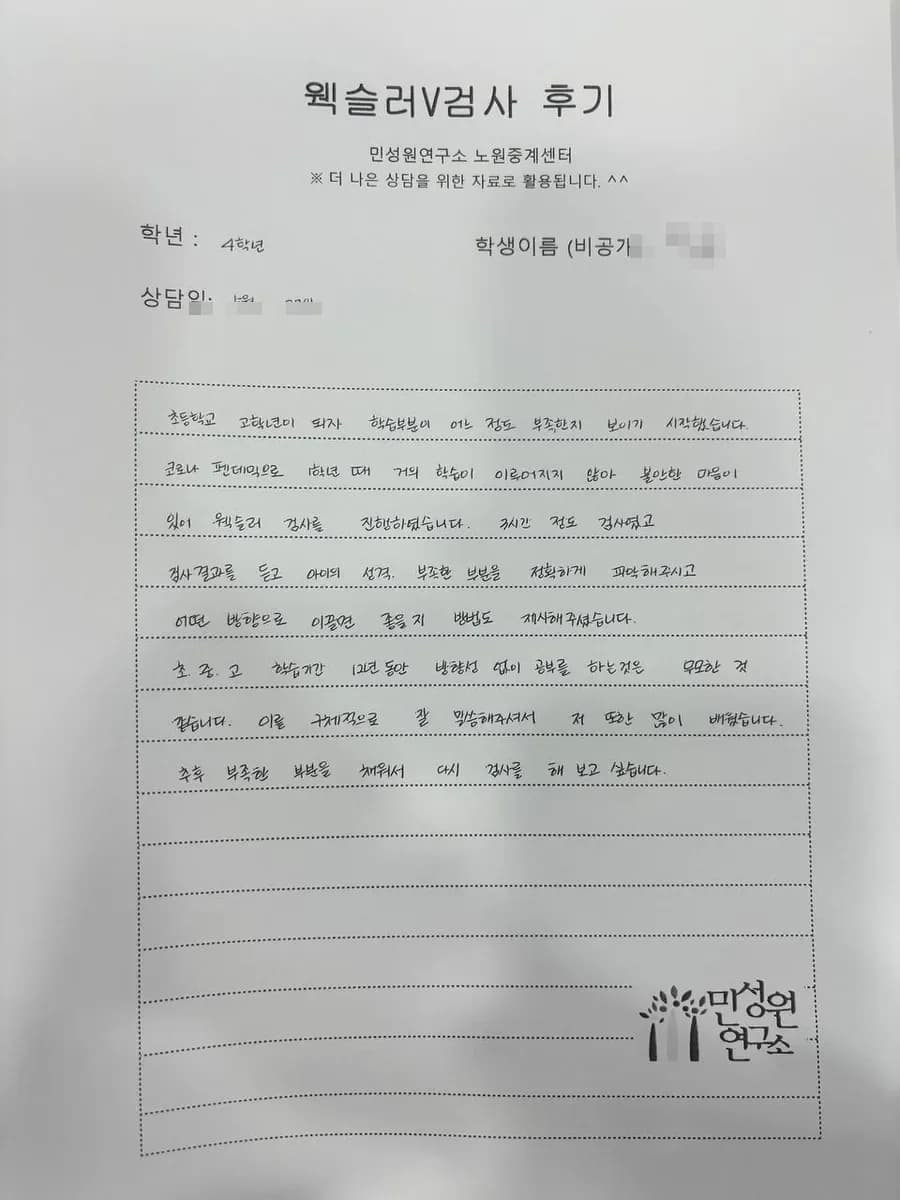 웩슬러V검사 후기
민성원연구소 노원중계센터
※ 더 나은 상담을 위한 자료로 활용됩니다. ^^
학년 : 4학년
학생이름 (비공개
상담일:
초등학교 고학년이 되자 학습부분이 어느 정도 부족한지 보이기 시작했습니다.
코로나 펜데믹으로 1학년 때 거의 학습이 이루어지지 않아 불안한 마음이
있어 웩슬러 검사를 진행하였습니다. 3시간 정도 검사였고
검사결과를 듣고 아이의 성격, 부족한 부분을 정확하게 파악해주시고
어떤 방향으로 이끌면 좋을지 방법도 제시해주셨습니다.
초.중.고 학습기간 12년 동안 방향성 없이 공부를 하는것은 무모한 것
같습니다. 이를 구체적으로 잘 말씀해주셔서 저 또한 많이 배웠습니다.
추후 부족한 부분을 채워서 다시 검사를 해 보고 싶습니다.
민성원
연구소